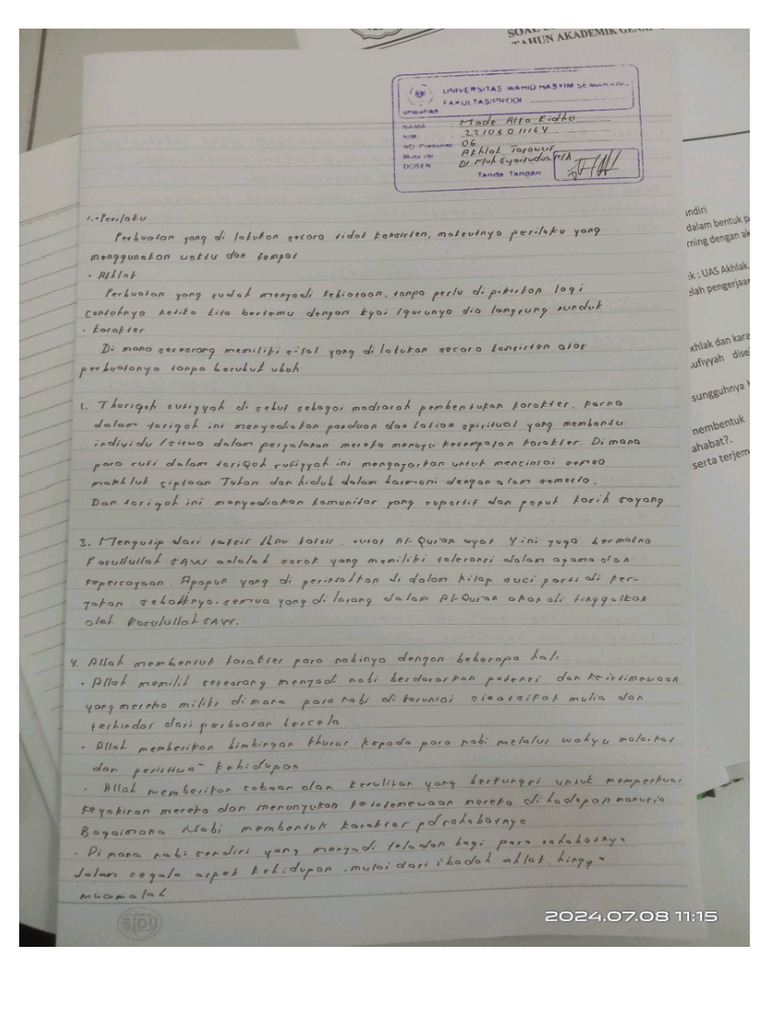 SOAL
TAHUN AKADEMIK GENAP
UNIVERSITAS WAHID HASYIM SEMARANG
FAKULTAS/PRODI
NAMA
Made Alfa Ridho
NIM
22106011164
NO Presensi 06
Mata Uji Akhlak Tasawuf
DOSEN
Tanda Tangan
1. • Perilaku
Perbuatan yang di lakukan secara tidak konsisten, maksutnya perilaku yang
menggunakan waktu dan tempat
• Akhlak
Perbuatan yang sudah menjadi kebiasaan, tanpa perlu di pikirkan lagi
contohnya ketika kita bertemu dengan kyai /gurunya dia langsung nunduk
• karakter
Di mana seseorang memiliki sifat yang di lakukan secara konsisten atas
perbuatanya tanpa berubut ubah
2. Thoriqoh sufiyyah di sebut sebagai madrasah pembentukan karakter, karna
dalam toriqoh ini menyediakan panduan dan latian spiritual yang membantu
individu / siswa dalam perjalanan mereka menuju kesempatan karakter. Di mana
para sufi dalam toriqoh sufiyyah ini mengajarkan untuk mencintai semua
makhluk ciptaan Tuhan dan hidub dalam harmoni dengan alam semesta.
Dan toriqoh ini menyediakan komunitas yang supertif dan penuh kasih sayang
3. Mengutip dari tafsir Ibnu katsir, surat Al-Qur'an ayat 4 ini juga bermakna
Rasullullah SAW adalah sosok yang memiliki toleransi dalam agama dan
kepercayaan. Apapun yang di perintahkan di dalam kitap suci pasti di ker-
jakan, sebaliknya semua yang di larang dalam Al-Qur'an akan di tinggalkan
oleh Rasulullah SAW.
4. Allah membentuk karakter para nabinya dengan beberapa hal:
• Allah memilih seseorang menjadi nabi berdasarkan potensi dan keistimewaan
yang mereka miliki di mana para nabi di karuniai sifat sifat mulia dan
terhindar dari perbuatan tercela
• Allah memberikan bimbingan khusus kepada para nabi melalui wahyu malaikat
dan peristiwa² kehidupan
• Allah memberikan cobaan dan kesulitan yang berfungsi untuk memperkuat
keyakinan mereka dan menunjukan keistemewaan mereka di hadapan manusia
Bagaimana Nabi membentuk karakter pd sahabatnya
• Di mana nabi sendiri yang menjadi teladan bagi para sahabatnya
dalam segala aspek kehidupan, mulai dari ibadah akhlak, hingga
muamalah
SIDU
ndiri
dalam bentuk p
rning dengan ak
k : UAS Akhlak
elah pengerjaan
khlak dan kara
ufiyyah dise
sungguhnya k
membentuk
ahabat?.
serta terjem
2024.07.08 11:15